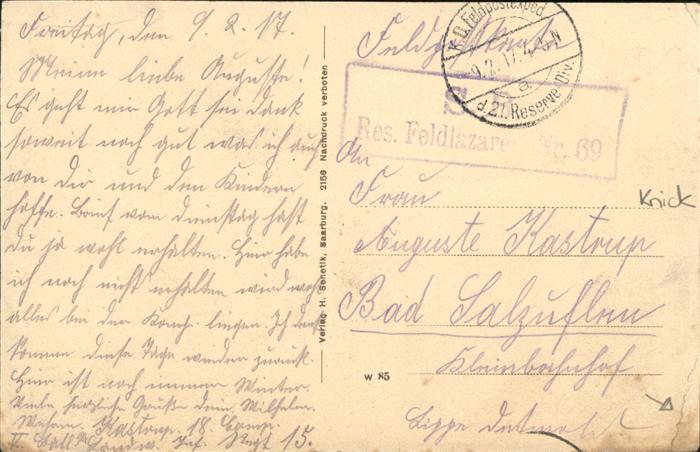 Freitag, den 9. 2. 17.
Meine liebe Auguste!
Es geht mir Gott sei Dank
soweit noch gut was ich auch
von dir und den Kindern
hoffe. Brief vom Dienstag hast
du ja wohl erhalten. Hier habe
ich noch nicht erhalten wird wohl
alles bei der Komp. liegen. Ich
kommen diese Tage wieder zurück.
Hier ist noch immer Winter.
Viele herzliche Grüße dein Wilhelm.
Kastrup. 18. Comp.
II. Batl. Landw. Inf. Regt 15.
Verlag H. Senetik, Saarburg. 2156 Nachdruck verboten
Feldpostkarte
K.D. Feldpostexped.
9.2.17. 4-5 N
a
d. 21. Reserve-Div.
S.
Res. Feldlazarett Nr. 69
An
Frau
Auguste Kastrup
Knick
Bad Salzuflen
Kleinbahnhof
W 85
Lippe Detmold